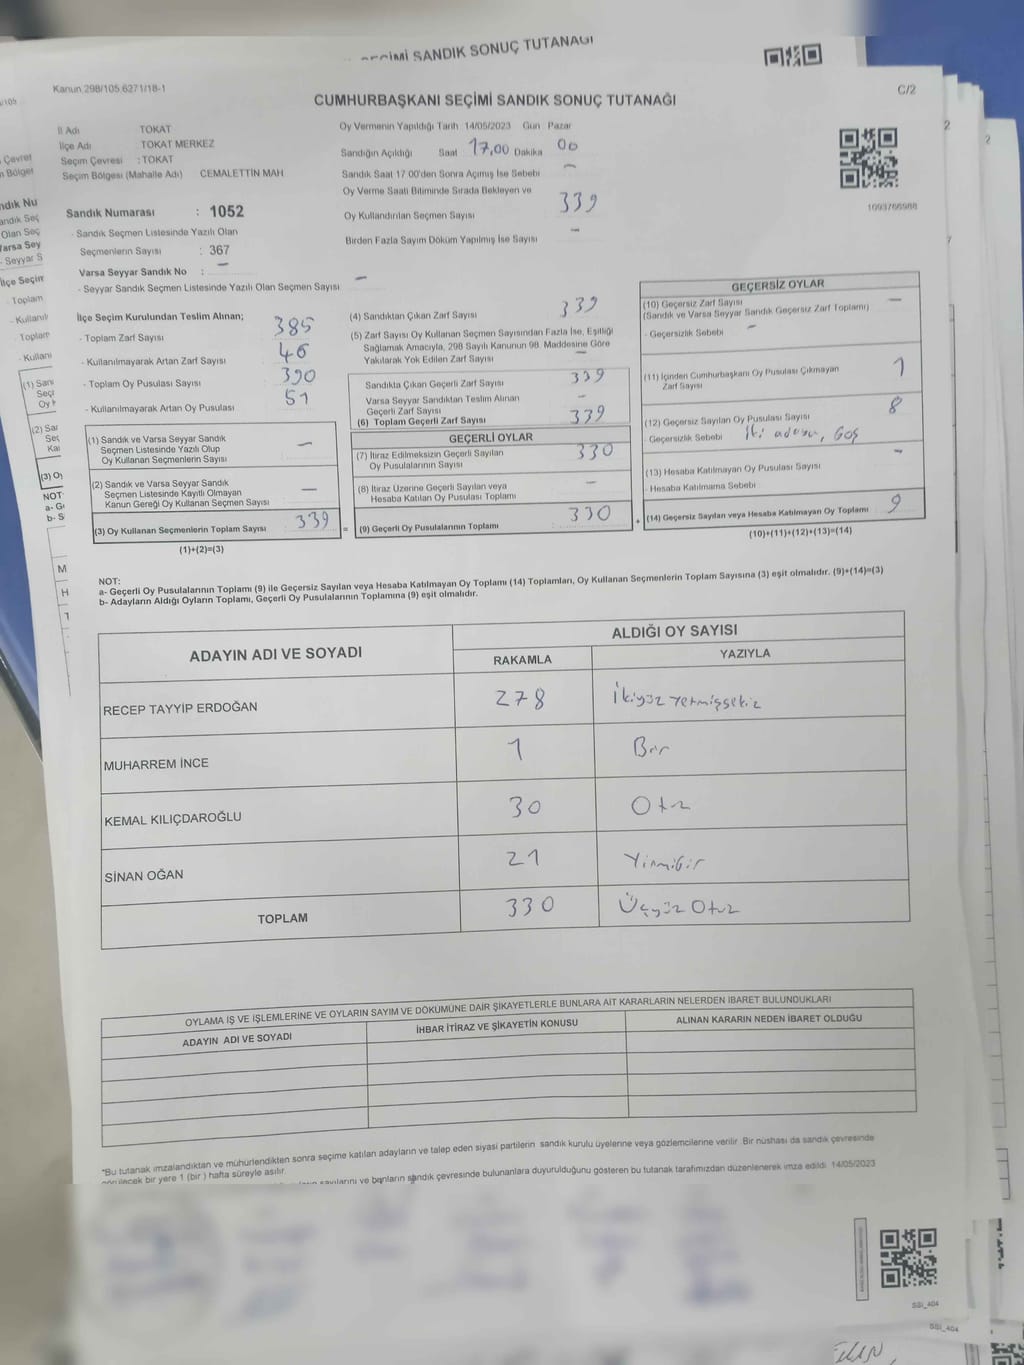 SEÇİMİ SANDIK SONUÇ TUTANAĞI
Kanun 298/105 6271/18-1
C/2
CUMHURBAŞKANI SEÇİMİ SANDIK SONUÇ TUTANAĞI
İl Adı TOKAT
İlçe Adı TOKAT MERKEZ
Seçim Çevresi : TOKAT
Seçim Bölgesi (Mahalle Adı) CEMALETTİN MAH
Sandık Numarası : 1052
- Sandık Seçmen Listesinde Yazılı Olan
Seçmenlerin Sayısı : 367
Varsa Seyyar Sandık No : -
- Seyyar Sandık Seçmen Listesinde Yazılı Olan Seçmen Sayısı -
Oy Vermenin Yapıldığı Tarih 14/05/2023 Gün Pazar
Sandığın Açıldığı Saat 17,00 Dakika 00
Sandık Saat 17 00'den Sonra Açımış İse Sebebi -
Oy Verme Saati Bitiminde Sırada Bekleyen ve
Oy Kullandırılan Seçmen Sayısı 339
Birden Fazla Sayım Döküm Yapılmış İse Sayısı -
1093766988
İlçe Seçim Kurulundan Teslim Alınan;
- Toplam Zarf Sayısı 385
- Kullanılmayarak Artan Zarf Sayısı 46
- Toplam Oy Pusulası Sayısı 390
- Kullanılmayarak Artan Oy Pusulası 51
(1) Sandık ve Varsa Seyyar Sandık
Seçmen Listesinde Yazılı Olup
Oy Kullanan Seçmenlerin Sayısı -
(2) Sandık ve Varsa Seyyar Sandık
Seçmen Listesinde Kayıtlı Olmayan
Kanun Gereği Oy Kullanan Seçmen Sayısı -
(3) Oy Kullanan Seçmenlerin Toplam Sayısı 339 =
(1)+(2)=(3)
(4) Sandıktan Çıkan Zarf Sayısı 339
(5) Zarf Sayısı Oy Kullanan Seçmen Sayısından Fazla İse, Eşitliği
Sağlamak Amacıyla, 298 Sayılı Kanunun 98. Maddesine Göre
Yakılarak Yok Edilen Zarf Sayısı -
Sandıkta Çıkan Geçerli Zarf Sayısı 339
Varsa Seyyar Sandıktan Teslim Alınan
Geçerli Zarf Sayısı -
(6) Toplam Geçerli Zarf Sayısı 339
GEÇERLİ OYLAR
(7) İtiraz Edilmeksizin Geçerli Sayılan
Oy Pusulalarının Sayısı 330
(8) İtiraz Üzerine Geçerli Sayılan veya
Hesaba Katılan Oy Pusulası Toplamı -
(9) Geçerli Oy Pusulalarının Toplamı 330 +
GEÇERSİZ OYLAR
(10) Geçersiz Zarf Sayısı -
(Sandık ve Varsa Seyyar Sandık Geçersiz Zarf Toplamı)
- Geçersizlik Sebebi -
(11) İçinden Cumhurbaşkanı Oy Pusulası Çıkmayan
Zarf Sayısı 1
(12) Geçersiz Sayılan Oy Pusulası Sayısı 8
- Geçersizlik Sebebi İki adaya, Boş
(13) Hesaba Katılmayan Oy Pusulası Sayısı -
- Hesaba Katılmama Sebebi
(14) Geçersiz Sayılan veya Hesaba Katılmayan Oy Toplamı 9
(10)+(11)+(12)+(13)=(14)
NOT:
a- Geçerli Oy Pusulalarının Toplamı (9) ile Geçersiz Sayılan veya Hesaba Katılmayan Oy Toplamı (14) Toplamları, Oy Kullanan Seçmenlerin Toplam Sayısına (3) eşit olmalıdır. (9)+(14)=(3)
b- Adayların Aldığı Oyların Toplamı, Geçerli Oy Pusulalarının Toplamına (9) eşit olmalıdır.
ADAYIN ADI VE SOYADI ALDIĞI OY SAYISI
RAKAMLA YAZIYLA
RECEP TAYYİP ERDOĞAN 278 İkiyüz Yetmişsekiz
MUHARREM İNCE 1 Bir
KEMAL KILIÇDAROĞLU 30 Otuz
SİNAN OĞAN 21 Yirmibir
TOPLAM 330 Üçyüz Otuz
OYLAMA İŞ VE İŞLEMLERİNE VE OYLARIN SAYIM VE DÖKÜMÜNE DAİR ŞİKAYETLERLE BUNLARA AİT KARARLARIN NELERDEN İBARET BULUNDUKLARI
ADAYIN ADI VE SOYADI İHBAR İTİRAZ VE ŞİKAYETİN KONUSU ALINAN KARARIN NEDEN İBARET OLDUĞU
*Bu tutanak imzalandıktan ve mühürlendikten sonra seçime katılan adayların ve talep eden siyasi partilerin sandık kurulu üyelerine veya gözlemcilerine verilir. Bir nüshası da sandık çevresinde
görülecek bir yere 1 (bir ) hafta süreyle asılır.
sayılarını ve bunların sandık çevresinde bulunanlara duyurulduğunu gösteren bu tutanak tarafımızdan düzenlenerek imza edildi 14/05/2023
SSI_404
SSI_404